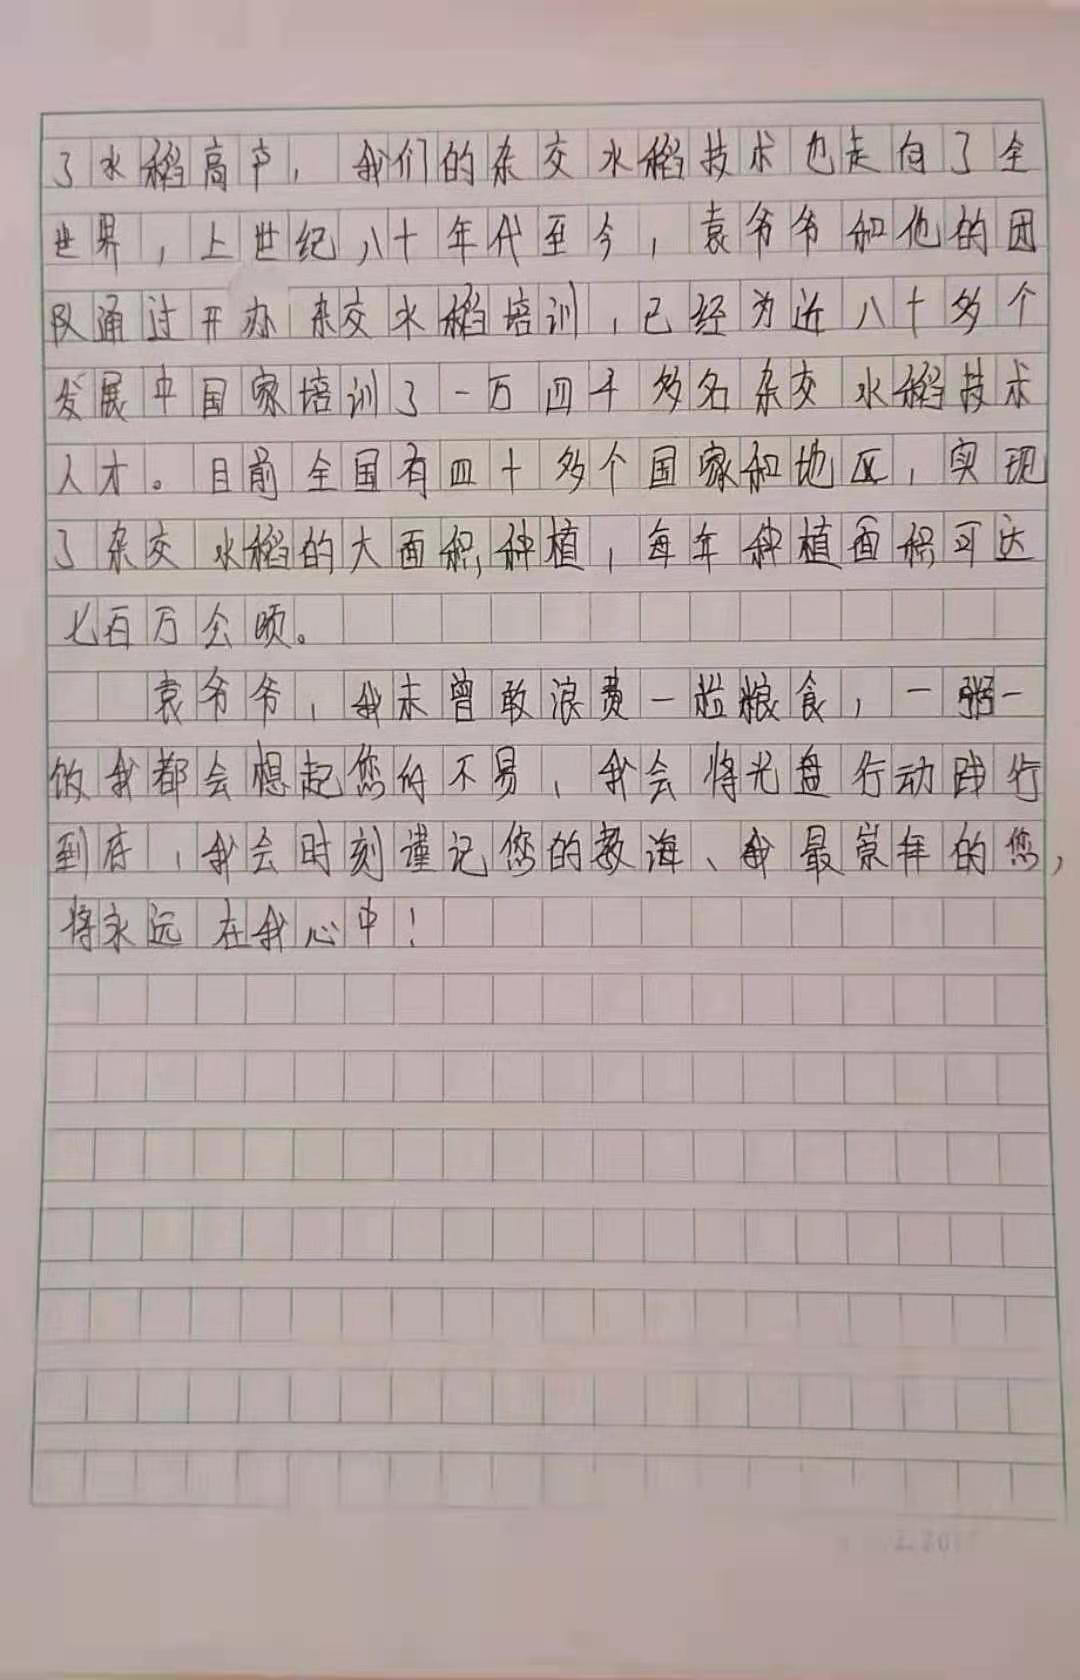 了水稻高产，我们的杂交水稻技术也走向了全
世界，上世纪八十年代至今，袁爷爷和他的团
队通过开办杂交水稻培训，已经为近八十多个
发展中国家培训了一万四千多名杂交水稻技术
人才。目前全国有四十多个国家和地区，实现
了杂交水稻的大面积种植，每年种植面积可达
七百万公顷。
袁爷爷，我未曾敢浪费一粒粮食，一粥一
饭我都会想起您的不易，我会将光盘行动践行
到底，我会时刻谨记您的教海、我最崇拜的您，
将永远在我心中！